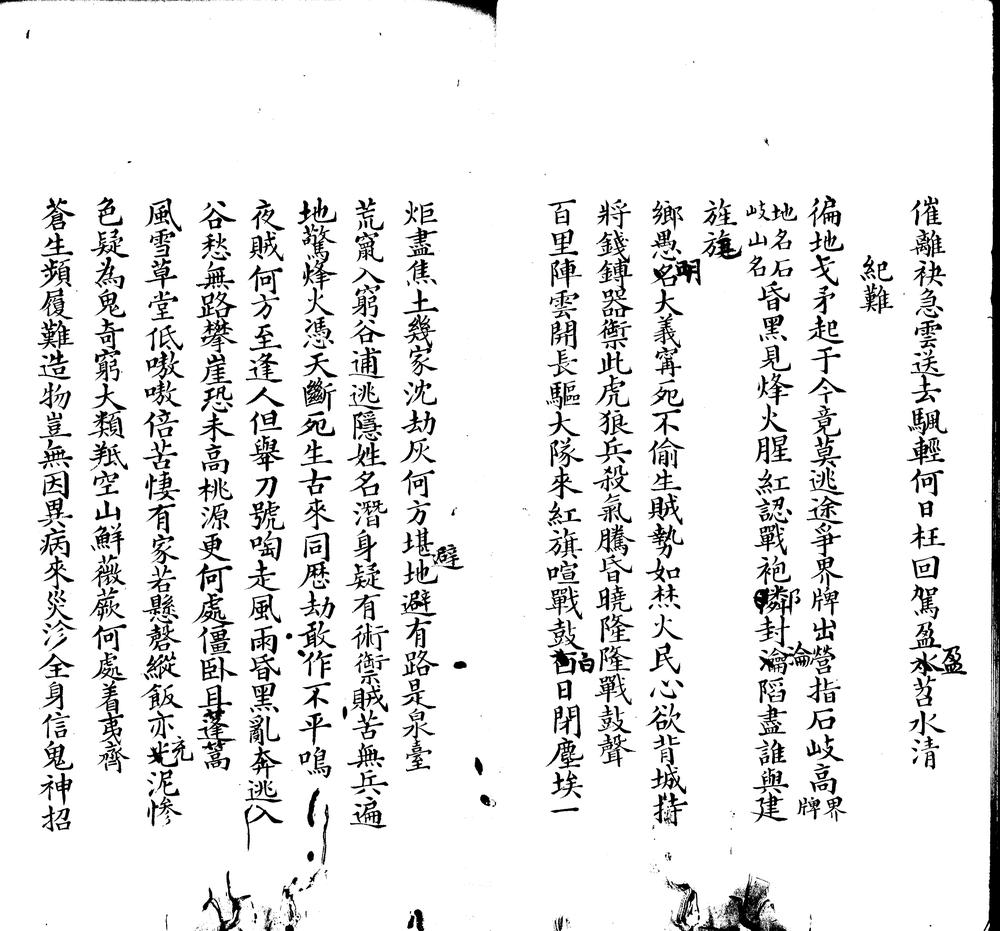 催離袂急雲送去颿輕何日枉回駕盈盈水苕水清
紀難
徧地戈矛起于今竟莫逃途爭界牌出營指石岐高界牌
地名石岐山名昏黑見烽火腥紅認戰袍鄰封淪陷盡誰與建
旌旄
鄉愚明大義寗死不偷生賊勢如焚火民心欲背城持
將錢鎛器禦此虎狼兵殺氣騰昏曉隆隆戰鼓聲
百里陣雲開長驅大隊來紅旗喧戰鼓白日閉塵埃一
炬盡焦土幾家沈劫灰何方堪避地避有路是泉臺
荒竄入窮谷逋逃隱姓名潛身疑有術禦賊苦無兵遍
地驚烽火憑天斷死生古來同歷劫敢作不平鳴
夜賊何方至逢人但舉刀號啕走風雨昏黑亂奔逃入
谷愁無路攀崖恐未高桃源更何處僵臥且蓬蒿
風雪草堂低嗷嗷倍苦悽有家若懸磬縱飯亦充泥慘
色疑為鬼奇窮大類羝空山鮮薇蕨何處着夷齊
蒼生頻履難造物豈無因異病來災沴全身信鬼神招